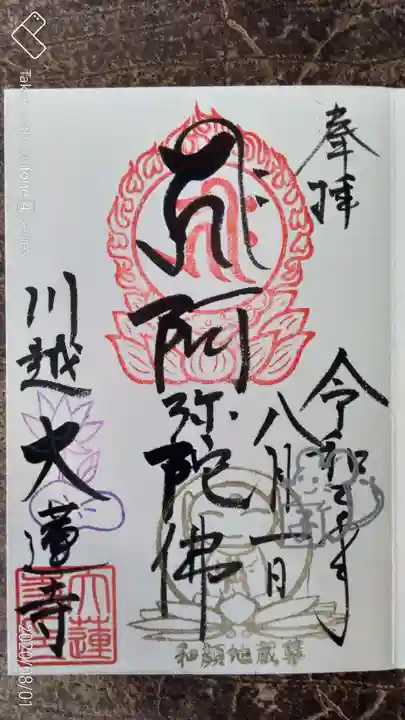 奉拝
令和二年
八月一日
阿弥陀佛
川越 大蓮寺
大蓮
和顔地蔵尊
2020/08/01